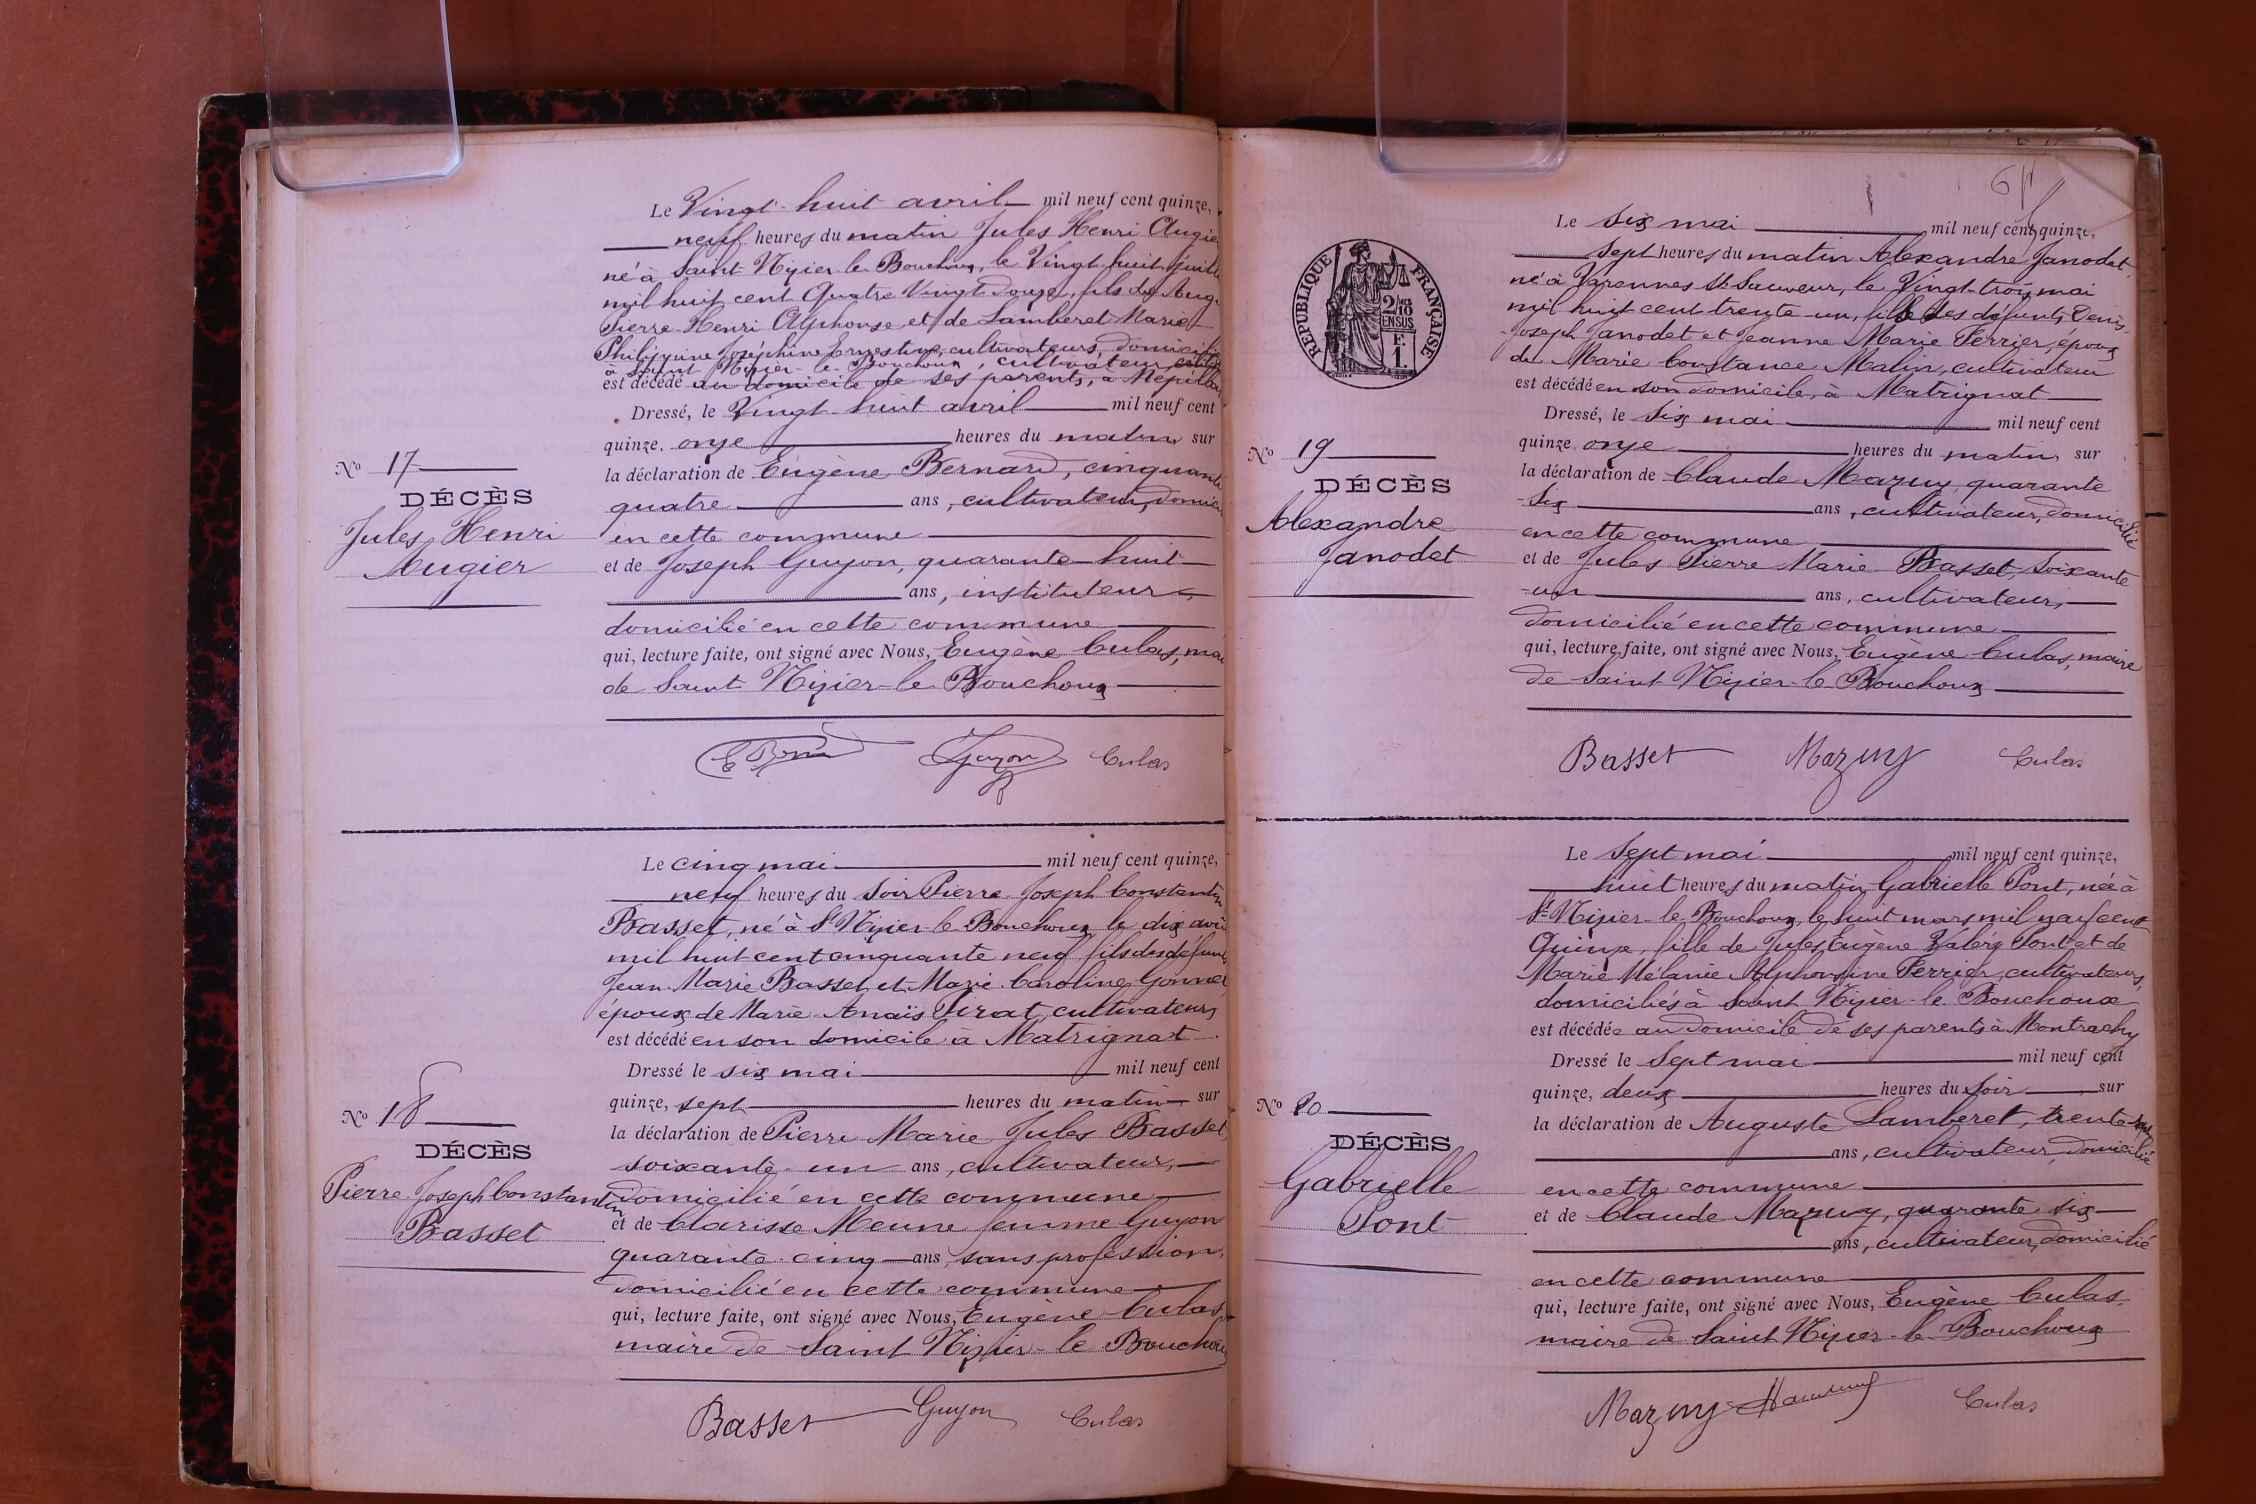 Le Vingt-huit avril mil neuf cent quinze,
neuf heures du matin Jules Henri Augie
né à Saint Nizier-le-Bouchoux, le Vingt-huit
mil huit cent Quatre Vingt douze, fils de Aug
Pierre-Henri Alphonse et de Lamberet Marie-
Philippine Joséphine Ernestine, cultivateurs,
à Saint Nizier-le-Bouchoux, cultivateur,
est décédé au domicile de ses parents, à
Dressé, le Vingt-huit avril mil neuf cent
quinze, onze heures du matin sur
No 17
la déclaration de Eugène Bernard, cinquante
DÉCÈS
quatre ans, cultivateur,
Jules Henri
en cette commune
Augier
et de Joseph Guyon, quarante-huit
ans, instituteur,
domicilié en cette commune
qui, lecture faite, ont signé avec Nous, Eugène Culas, mai
de Saint Nizier-le-Bouchoux
Guyon Culas
Le cinq mai mil neuf cent quinze,
neuf heures du soir Pierre Joseph Constantin
Basset, né à St Nizier-le-Bouchoux le dix avri
mil huit cent cinquante neuf, fils des défunts
Jean-Marie Basset et Marie Caroline
époux de Marie-Anaïs Pirat, cultivateur,
est décédé en son domicile à Matrignat
Dressé le six mai mil neuf cent
quinze, sept heures du matin sur
No 18
la déclaration de Pierre Marie Jules Basset
DÉCÈS
soixante-un ans, cultivateur,
Pierre-Joseph Constantin
domicilié en cette commune
Basset
et de Clarisse Meune femme Guyon
quarante-cinq ans, sans profession,
domicilié en cette commune
qui, lecture faite, ont signé avec Nous, Eugène Culas,
maire de Saint Nizier-le-Bouchoux
Basset Guyon Culas
Le six mai mil neuf cent quinze,
RÉPUBLIQUE FRANÇAISE
2/10 EN SUS
F. 1.
sept heures du matin Alexandre Janodet
né à Varennes St Sauveur, le Vingt-trois mai
mil huit cent trente-un, fils des défunts Denis-
Joseph Janodet et Jeanne Marie Ferrier, époux
de Marie Constance Malin, cultivateur
est décédé en son domicile, à Matrignat
Dressé, le six mai mil neuf cent
quinze, onze heures du matin sur
No 19
la déclaration de Claude Mazuy, quarante
DÉCÈS
-six ans, cultivateur, domicilié
Alexandre
en cette commune
Janodet
et de Jules Pierre Marie Basset, Soixante
-un ans, cultivateur,
domicilié en cette commune
qui, lecture faite, ont signé avec Nous, Eugène Culas, maire
de Saint Nizier-le-Bouchoux
Basset Mazuy Culas
Le Sept mai mil neuf cent quinze,
huit heures du matin Gabrielle Pont, née à
St Nizier-le-Bouchoux, le huit mars mil neuf cent
Quinze, fille de Jules Eugène Valéry Pont et de
Marie Mélanie Alphonsine Ferrier, cultivateurs,
domiciliés à Saint Nizier-le-Bouchoux
est décédée au domicile de ses parents à Montrachy
Dressé le Sept mai mil neuf cent
quinze, deux heures du soir sur
No 20
la déclaration de Auguste Lamberet, trente
DÉCÈS
ans, cultivateur, domicilié
Gabrielle
en cette commune
Pont
et de Claude Mazuy, quarante six
ans, cultivateur, domicilié
en cette commune
qui, lecture faite, ont signé avec Nous, Eugène Culas,
maire de Saint Nizier-le-Bouchoux
Mazuy Culas